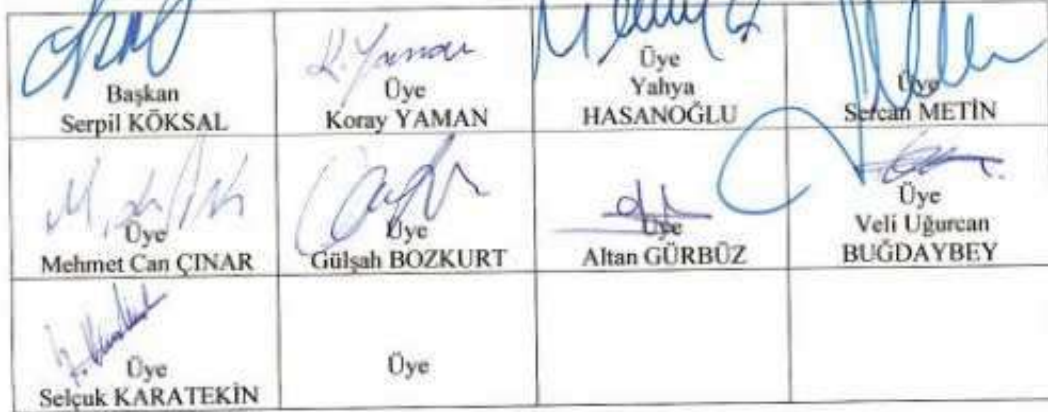 Başkan
Serpil KÖKSAL
K. Yaman
Üye
Koray YAMAN
Üye
Yahya
HASANOĞLU
Üye
Sercan METİN
Üye
Mehmet Can ÇINAR
Üye
Gülşah BOZKURT
Üye
Altan GÜRBÜZ
Üye
Veli Uğurcan
BUĞDAYBEY
Üye
Selçuk KARATEKİN
Üye